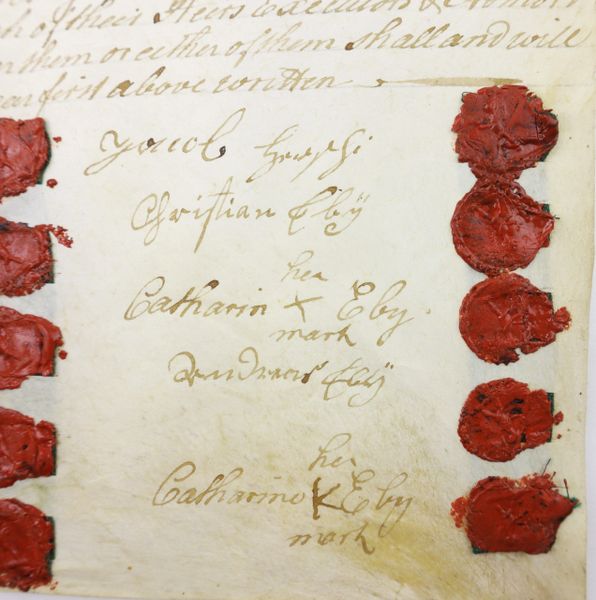 of their Heirs Executors &
them or either of them shall and will
year first above written
Jacob Herschi
Christian Ebÿ
her
Catharin X Eby
mark
Andreas Ebÿ
her
Catharine X Eby
mark